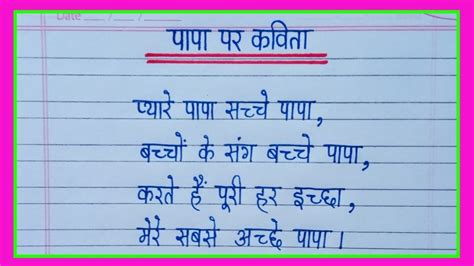 Date
पापा पर कविता
प्यारे पापा सच्चे पापा,
बच्चों के संग बच्चे पापा,
करते हैं पूरी हर इच्छा,
मेरे सबसे अच्छे पापा ।